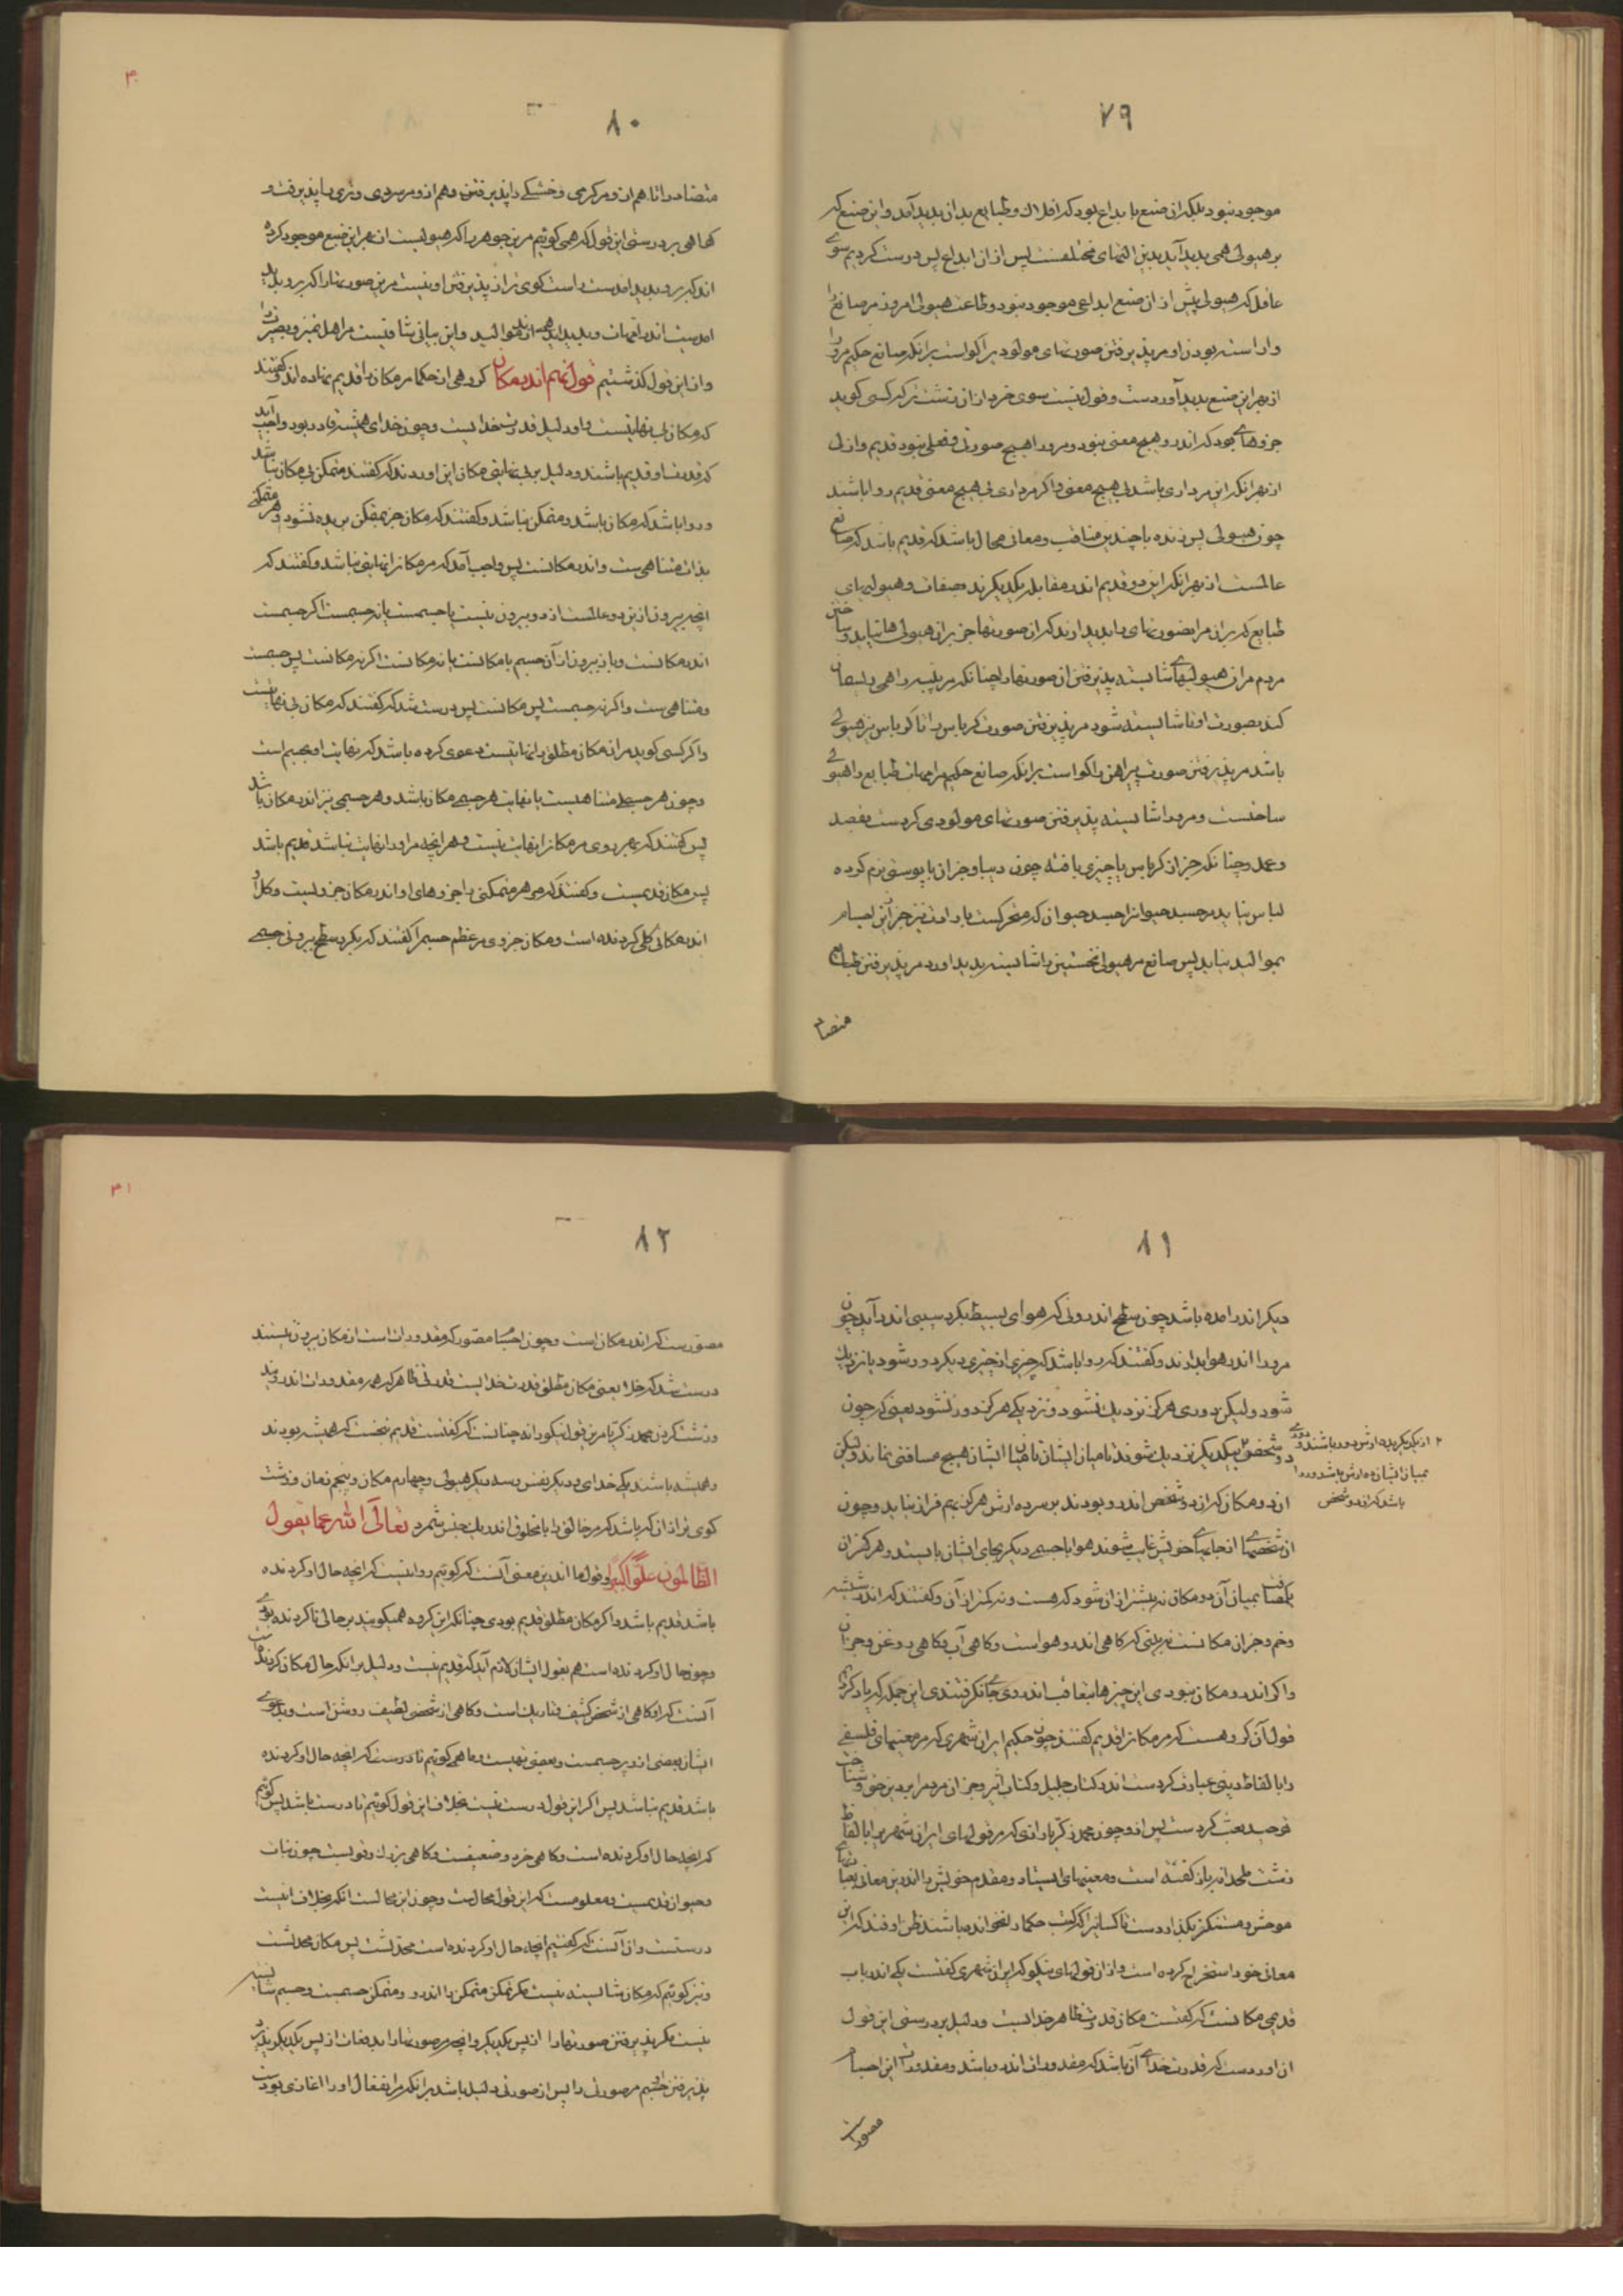 ۷۹
موجود نبود بلکه آن صنع با بداع بود که افلاک و طبایع بدان پدید آمد و این صنع که
بر هیولی همی پدید آید بدین التهای مختلفست پس از آن ابداع پس درست کردیم سوی
عاقل که هیولی پیش از آن صنع ابداعی موجود نبود و طاعت هیولی امروز مر صانع را
واراسته بودن او مر پذیرفتن صورتهای مولود برا کواست برانکه صانع حکیم مرورا
از بهر این صنع پدید آوردست و قول نیست سوی خرد از آن زشت تر که کسی کوید
جزوهای بود که اندرو هیچ معنی نبود و مرورا هیچ صورتی و فعلی نبود قدیم و ازلی
از بهر انکه این مرداری باشد بی هیچ معنی و اکر مرداری بی هیچ معنی قدیم روا باشد
چون هیولی پس زنده با چندین مناقب و معانی محال باشد که قدیم باشد که صانع
عالمست از بهر انکه این دو قدیم اندر مقابله یکدیکرند بصفات و هیولیهای
طبایع که یزدان مرا بصورتهای را پدید آرند که آن صورتها جز بران هیولی ها نیاید و ساختن
مردم مر آن هیولیها شایسته پذیرفتن آن صورتها را چنانکه مر پنبه را همی ریسمان
کند بصورت او تا شایسته شود مر پذیرفتن صورت کرباس را تا کرباس نیز هیولی
باشد مر پذیرفتن صورت پیراهن را کواست برانکه صانع حکیم مر امهات طبایع را هیولی
ساختست و مرورا شایسته پذیرفتن صورتهای مولودی کردست بقصد
و عمد و چنانکه جز آن کرباس یا چیزی بافته چون دیبا و جز آن یا پوستی نرم کرده
لباس نیاید بر جسد حیوان را جسد حیوان که متحرکست بارادت نیز جز ازین اجسام
بموالید نیاید پس صانع مر هیولی نخستین را شایسته پدید اورد مر پذیرفتن طبایع
متضاد
۸۰
متضاد را تا هم از و مر کرمی و خشکی را پذیرفتن و هم از و مر سردی و تری را پذیرفت و
کواهی بر درستی این قول که همی کوئیم مر این جوهر را که هیولیست از بهر این صنع موجود کرده
اند که برو پدید امدست راست کوی تر از پذیرفتن او نیست مر این صورتها را که برو پدید
امدست اندر امهات و پدید آینده اند از موالید و این بیانی شافیست مر اهل تمیز و بصیرت را
و از این قول کذشتیم قول نهم اندر مکان کروهی از حکما مر مکان را قدیم نهاده اند و کفتند
که مکان بی نهایتست و او دلیل قدرت خدا ایست و چون خدای همیشه قادر بود واجب آید
که قدرت او قدیم باشند و دلیل بر بی نهایتی مکان این اوردند که کفتند متمکن بی مکان نباشد
و روا باشد که مکان باشد و متمکن نباشد و کفتند که مکان جز بمتمکن بریده نشود و هر متمکنی
بذات متناهی ست و اندر مکانست پس واجب آمد که مر مکانرا نهایتی نباشد و کفتند که
انچه بیرون ازین دو عالمست از دو بیرون نیست یا جسمست یا نه جسمست اکر جسمست
اندر مکانست و باز بیرون از آن جسم یا مکانست یا نه مکانست اکر نه مکانست پس جسمست
و متناهی ست و اکر نه جسمست پس مکانست پس درست شد که کفتند که مکان بی نهایتست
و اکر کسی کوید مر آن مکان مطلق را نهایتست دعوی کرده باشد که نهایت او بجسم است
و چون هر جسمی متناهیست با نهایت هر جسمی مکان باشد و هر جسمی نیز اندر مکان باشد
پس کفتند که بهر روی مر مکانرا نهایت نیست و هر انچه مر او را نهایت نباشد قدیم باشد
پس مکان قدیمست و کفتند که مر هر متمکنی را جزوهای او اندر مکان جزویست و کل او
اندر مکانی کلی کردنده است و مکان جزوی مر عظم جسم را کفتند که بکرد سطح بیرونی جسمی
۸۱
دیکر اندر امده باشد چون سطح اندرونی که هوای بسیط بکرد سیبی اندر آید چون
مرورا اندر هوا بدارند و کفتند که روا باشد که چیزی از چیزی دیکر دور شود یا نزدیک
شود ولیکن دوری هرکز نزدیک نشود و نزدیکی هرکز دور نشود یعنی که چون
دو شخص ۲ بیکدیکر نزدیک شوند تا میان ایشان هیچ مسافتی نماند ولیکن
۲ از یکدیکر بده ارش دور باشند دوری
بمیان ایشان ده ارش باشد و روا
باشد که آن دو شخص
آن دو مکان که آن دو شخص اندرو بودند بر سر ده ارش هرکز بهم فراز نیاید و چون
آن شخصها از جایهای خویش غایب شوند هوا یا جسمی دیکر بجای ایشان بایستد و هرکز آن
مسافت بمیان آن دو مکان نه بیشتر از آن شود که هست و نه کمتر از آن و کفتند که اندر شیشه
و خم و جز آن مکانست نه بینی که کاهی اندرو هواست و کاهی آب و کاهی روغن و جز آن
و اکر اندرو مکان نبودی این چیزها بتعاقب اندر وی جانکرفتندی این جمله که یاد کردیم
قول آن کروهست که مر مکانرا قدیم کفتند چون حکیم ایران شهری که مر معنیهای فلسفی
را با لفاظ دینی عبارت کردست اندر کتاب جلیل و کتاب اثیر و جز آن مردم را بر دین حق و شناخت
توحید بعث کردست پس از و چون محمد زکریا رازی که مر قولهای ایران شهری را با لفاظ
زشت ملحدانه باز کفته است و معنیهای استاد و مقدم خویش را اندرین معانی بعبارتهای
موحش و مستنکر بکزاردست تا کسانیرا که کتب حکما را نخوانده باشند ظن اوفتد که این
معانی خود استخراج کرده است و از آن قولهای نیکو که ایران شهری کفتست یکی اندر باب
قدیمی مکانست که کفتست مکان قدرت ظاهر خدا ایست و دلیل بر درستی این قول
آن اوردست که قدرت خدای آن باشد که مقدورات اندرو باشد و مقدورات این اجسام
مصورست
۸۲
مصورست که اندر مکان است و چون اجسام مصور که مقدورات است از مکان بیرون نیستند
درست شد که خلا یعنی مکان مطلق قدرت خدا ایست قدرتی ظاهر که همه مقدورات اندرویند
و زشت کردن محمد زکریا مر این قول نیکو را نه چنانست که کفتست قدیم پنجست که همیشه بودند
و همیشه باشند یکی خدای و دیکر نفس و سه دیکر هیولی و چهارم مکان و پنجم زمان و زشت
کوی تر از آن که باشد که مر خالق را با مخلوق اندر یک جنس شمرد تعالی الله عما یقول
الظالمون علوا کبیرا و قول ما اندرین معنی آنست که کوئیم روا نیست که انچه حال او کردنده
باشد قدیم باشد و اکر مکان مطلق قدیم بودی چنانکه این کروه همیکویند بر حالی نا کردنده بودی
و چون حال او کردنده است هم بقول ایشان لازم آید که قدیم نیست و دلیل بر انکه حال مکان کردنده است
آنست که او کاهی از شخص کثیف و تاریک است و کاهی از شخصی لطیف و روشن است و بدعوی
ایشان بعضی از و پر جسمست و بعضی تهیست و ما همی کوئیم نا درست که انچه حال او کردنده
باشد قدیم نباشد پس اکر این قول درست نیست بخلاف این قول کوئیم تا درست باشد پس کوئیم
که انچه حال او کردنده است و کاهی خرد و ضعیفست و کاهی بزرک و قویست چون نبات
و حیوان قدیمست و معلومست که این قول محالست و چون این محالست انکه بخلاف اینست
درستست و آن آنست که کفتیم انچه حال او کردنده است محدثست پس مکان محدثست
و نیز کوئیم که مکان شایسته نیست مکر تمکن متمکن را اندرو و متمکن جسمست و جسم شایسته
نیست مکر پذیرفتن صورتها را از پس یکدیکر و انچه مر صورتها را بدفعات از پس یکدیکر پذیرد
پذیرفتن جسم مر صورتی را پس از صورتی دلیل باشد برانکه مر انفعال او را اغازی بودست